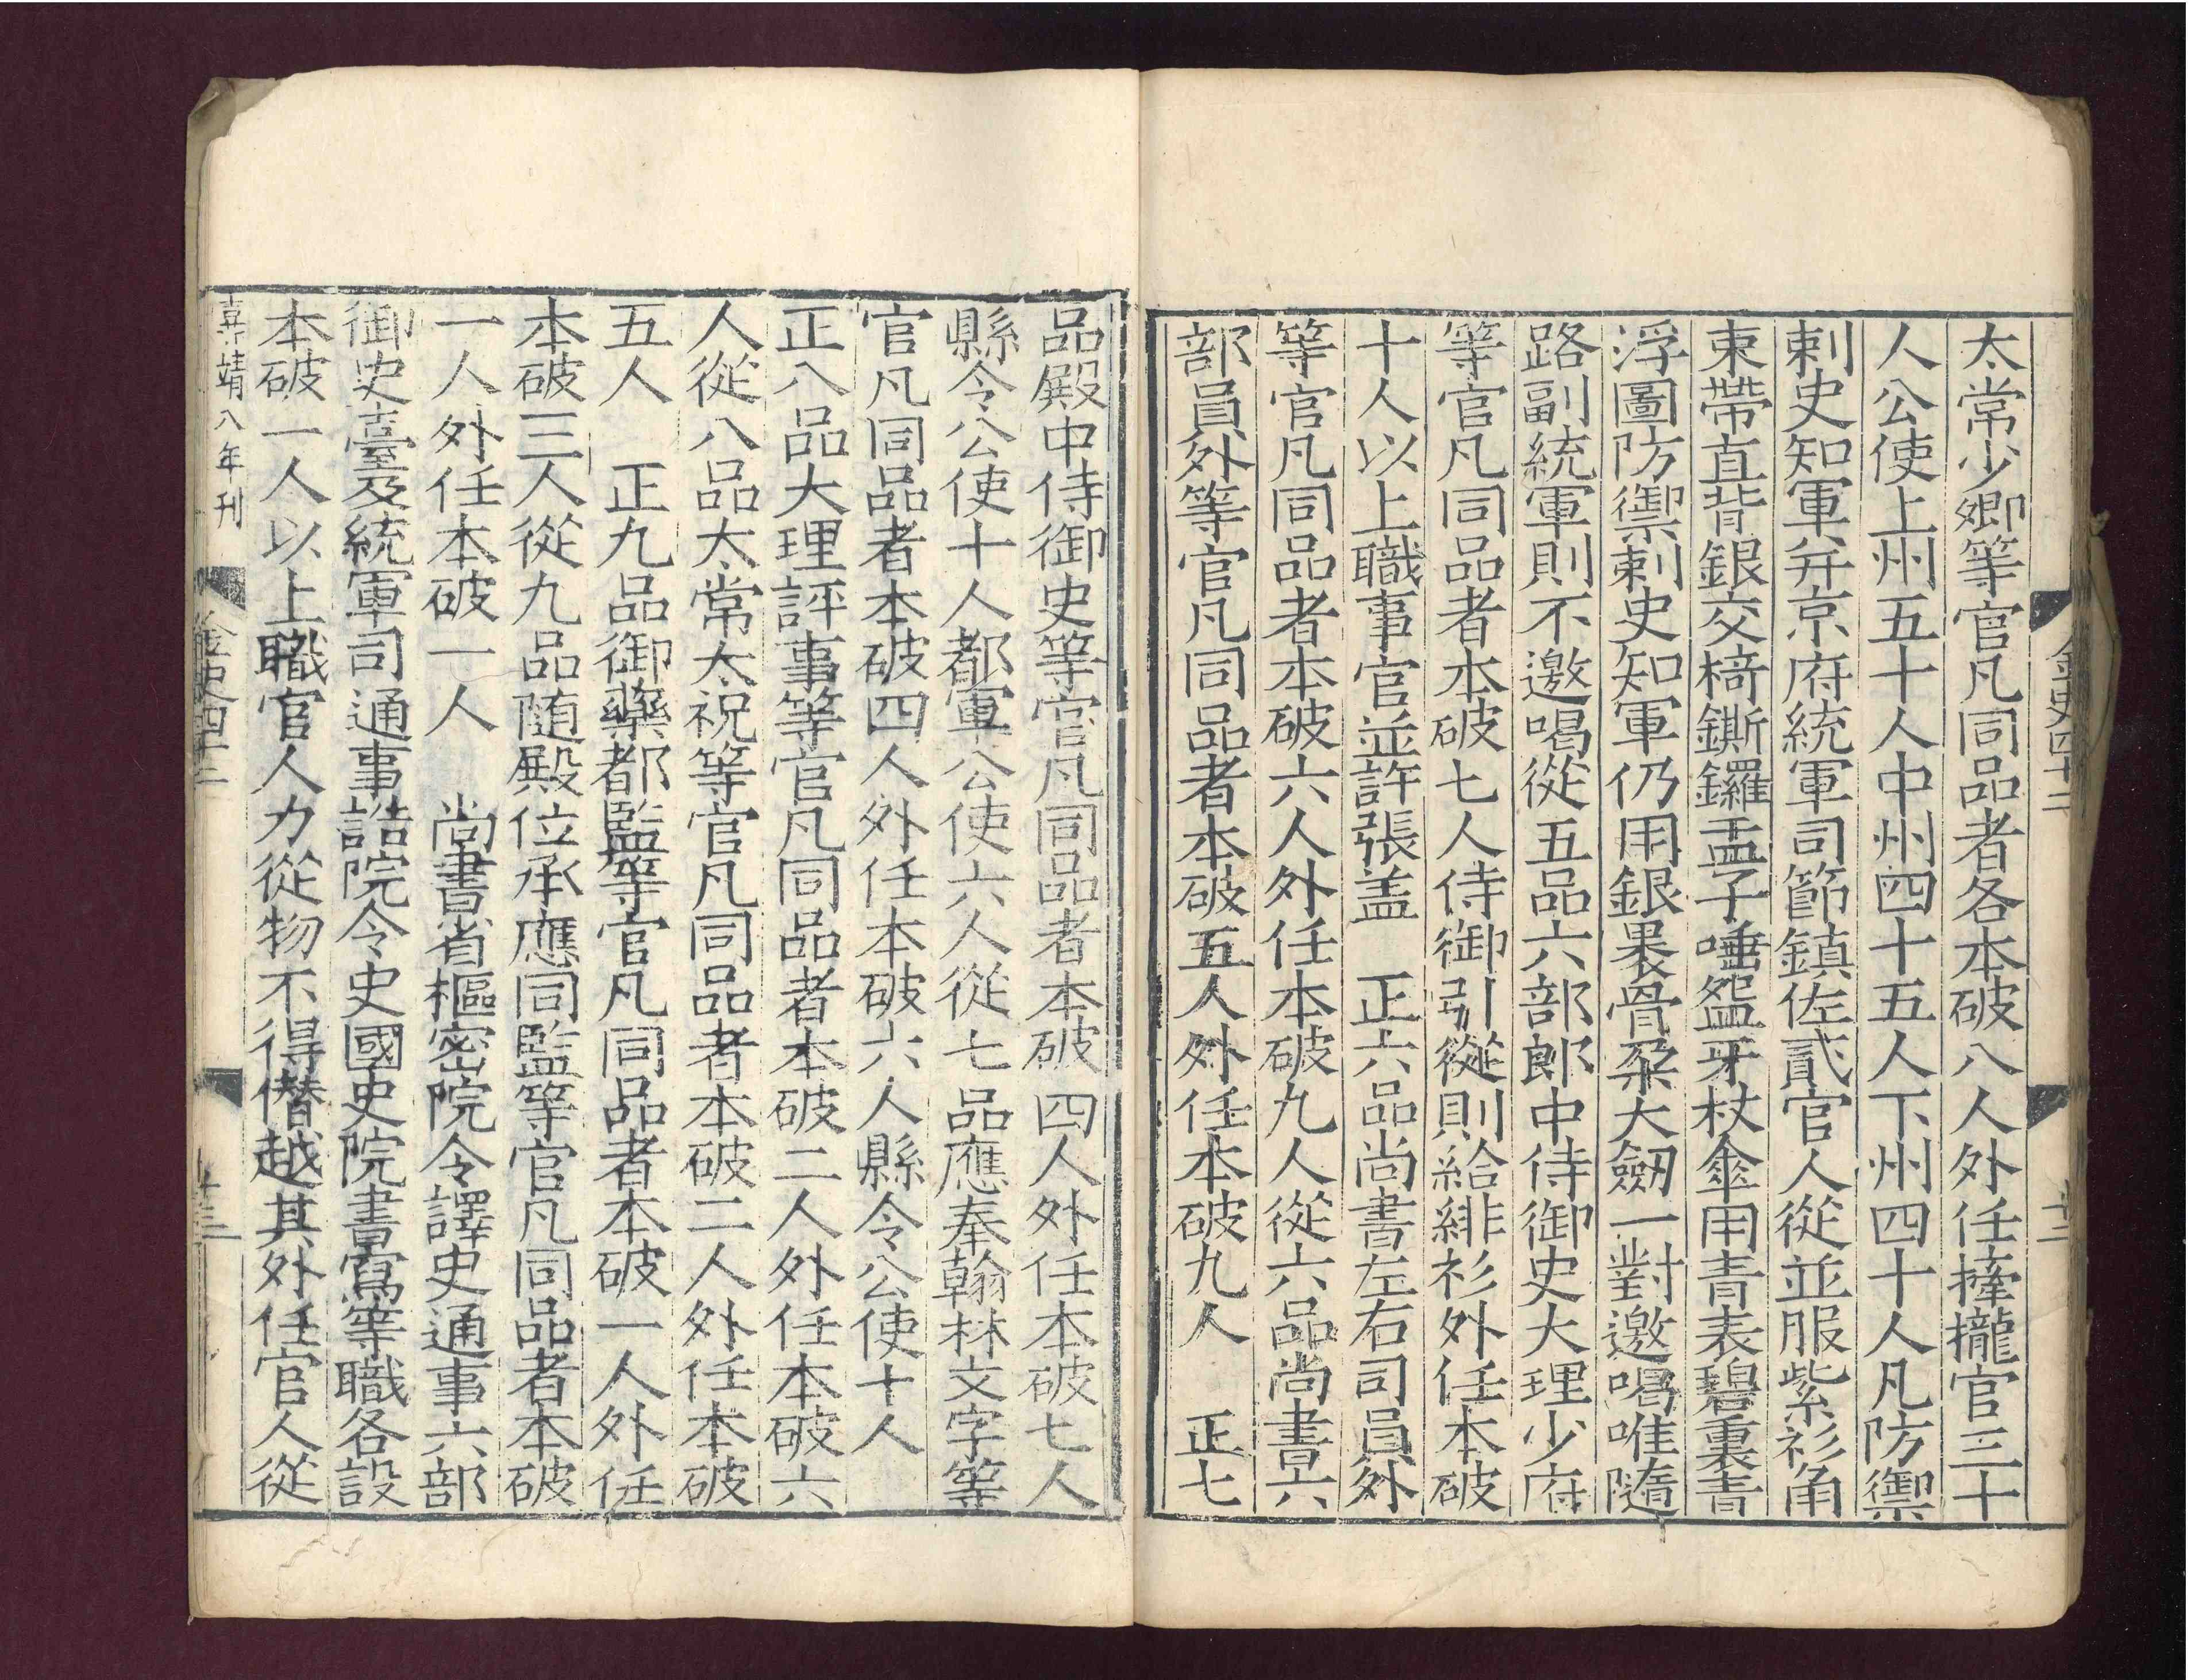 太常少卿等官凡同品者各本破八人外任擡攏官三十
人公使上州五十人中州四十五人下州四十人凡防禦
刺史知軍并京府統軍司節鎮佐貳官人從並服紫衫角
束帶直背銀交椅鐁鑼盂子唾盌牙杖傘用青表碧裏青
浮圖防禦刺史知軍仍用銀褁骨朶大劒一對邀喝唯隨
路副統軍則不邀喝從五品六部郎中侍御史大理少府
等官凡同品者本破七人侍御引從則給緋衫外任本破
十人以上職事官並許張盖　正六品尚書左右司員外
等官凡同品者本破六人外任本破九人從六品尚書六
部員外等官凡同品者本破五人外任本破九人　正七
金史四十二
十二
品殿中侍御史等官凡同品者本破四人外任本破七人
縣令公使十人都軍公使六人從七品應奉翰林文字等
官凡同品者本破四人外任本破六人縣令公使十人
正八品大理評事等官凡同品者本破二人外任本破六
人從八品太常太祝等官凡同品者本破二人外任本破
五人　正九品御藥都監等官凡同品者本破一人外任
本破三人從九品随殿位承應同監等官凡同品者本破
一人外任本破一人　尚書省樞密院令譯史通事六部
御史臺及統軍司通事誥院令史國史院書寫等職各設
本破一人以上職官人力從物不得僭越其外任官人從
嘉靖八年刊
金史四十二
十三